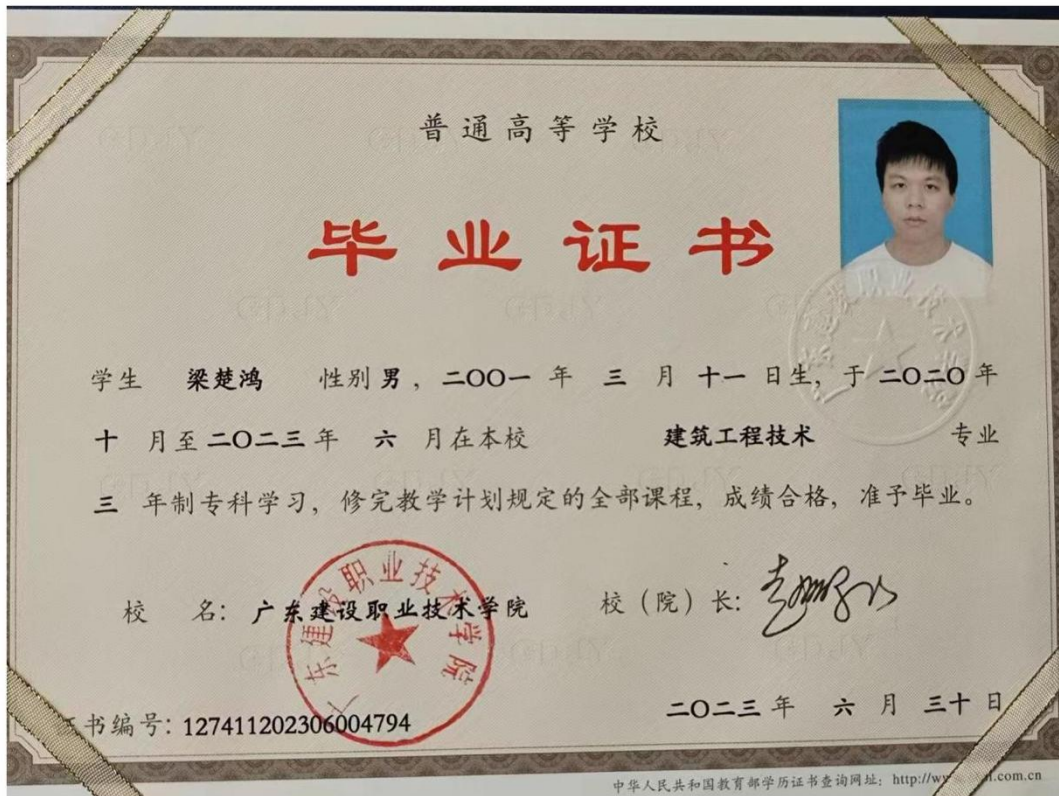 普通高等学校
毕业证书
学生 梁楚鸿 性别 男，二〇〇一 年 三 月 十一 日生，于 二〇二〇 年
十 月至 二〇二三 年 六 月在本校 建筑工程技术 专业
三 年制专科学习，修完教学计划规定的全部课程，成绩合格，准予毕业。
校 名：广东建设职业技术学院 校（院）长：
广东建设职业技术学院
书编号：127411202306004794 二〇二三 年 六 月 三十 日
中华人民共和国教育部学历证书查询网址：http://ww .com.cn